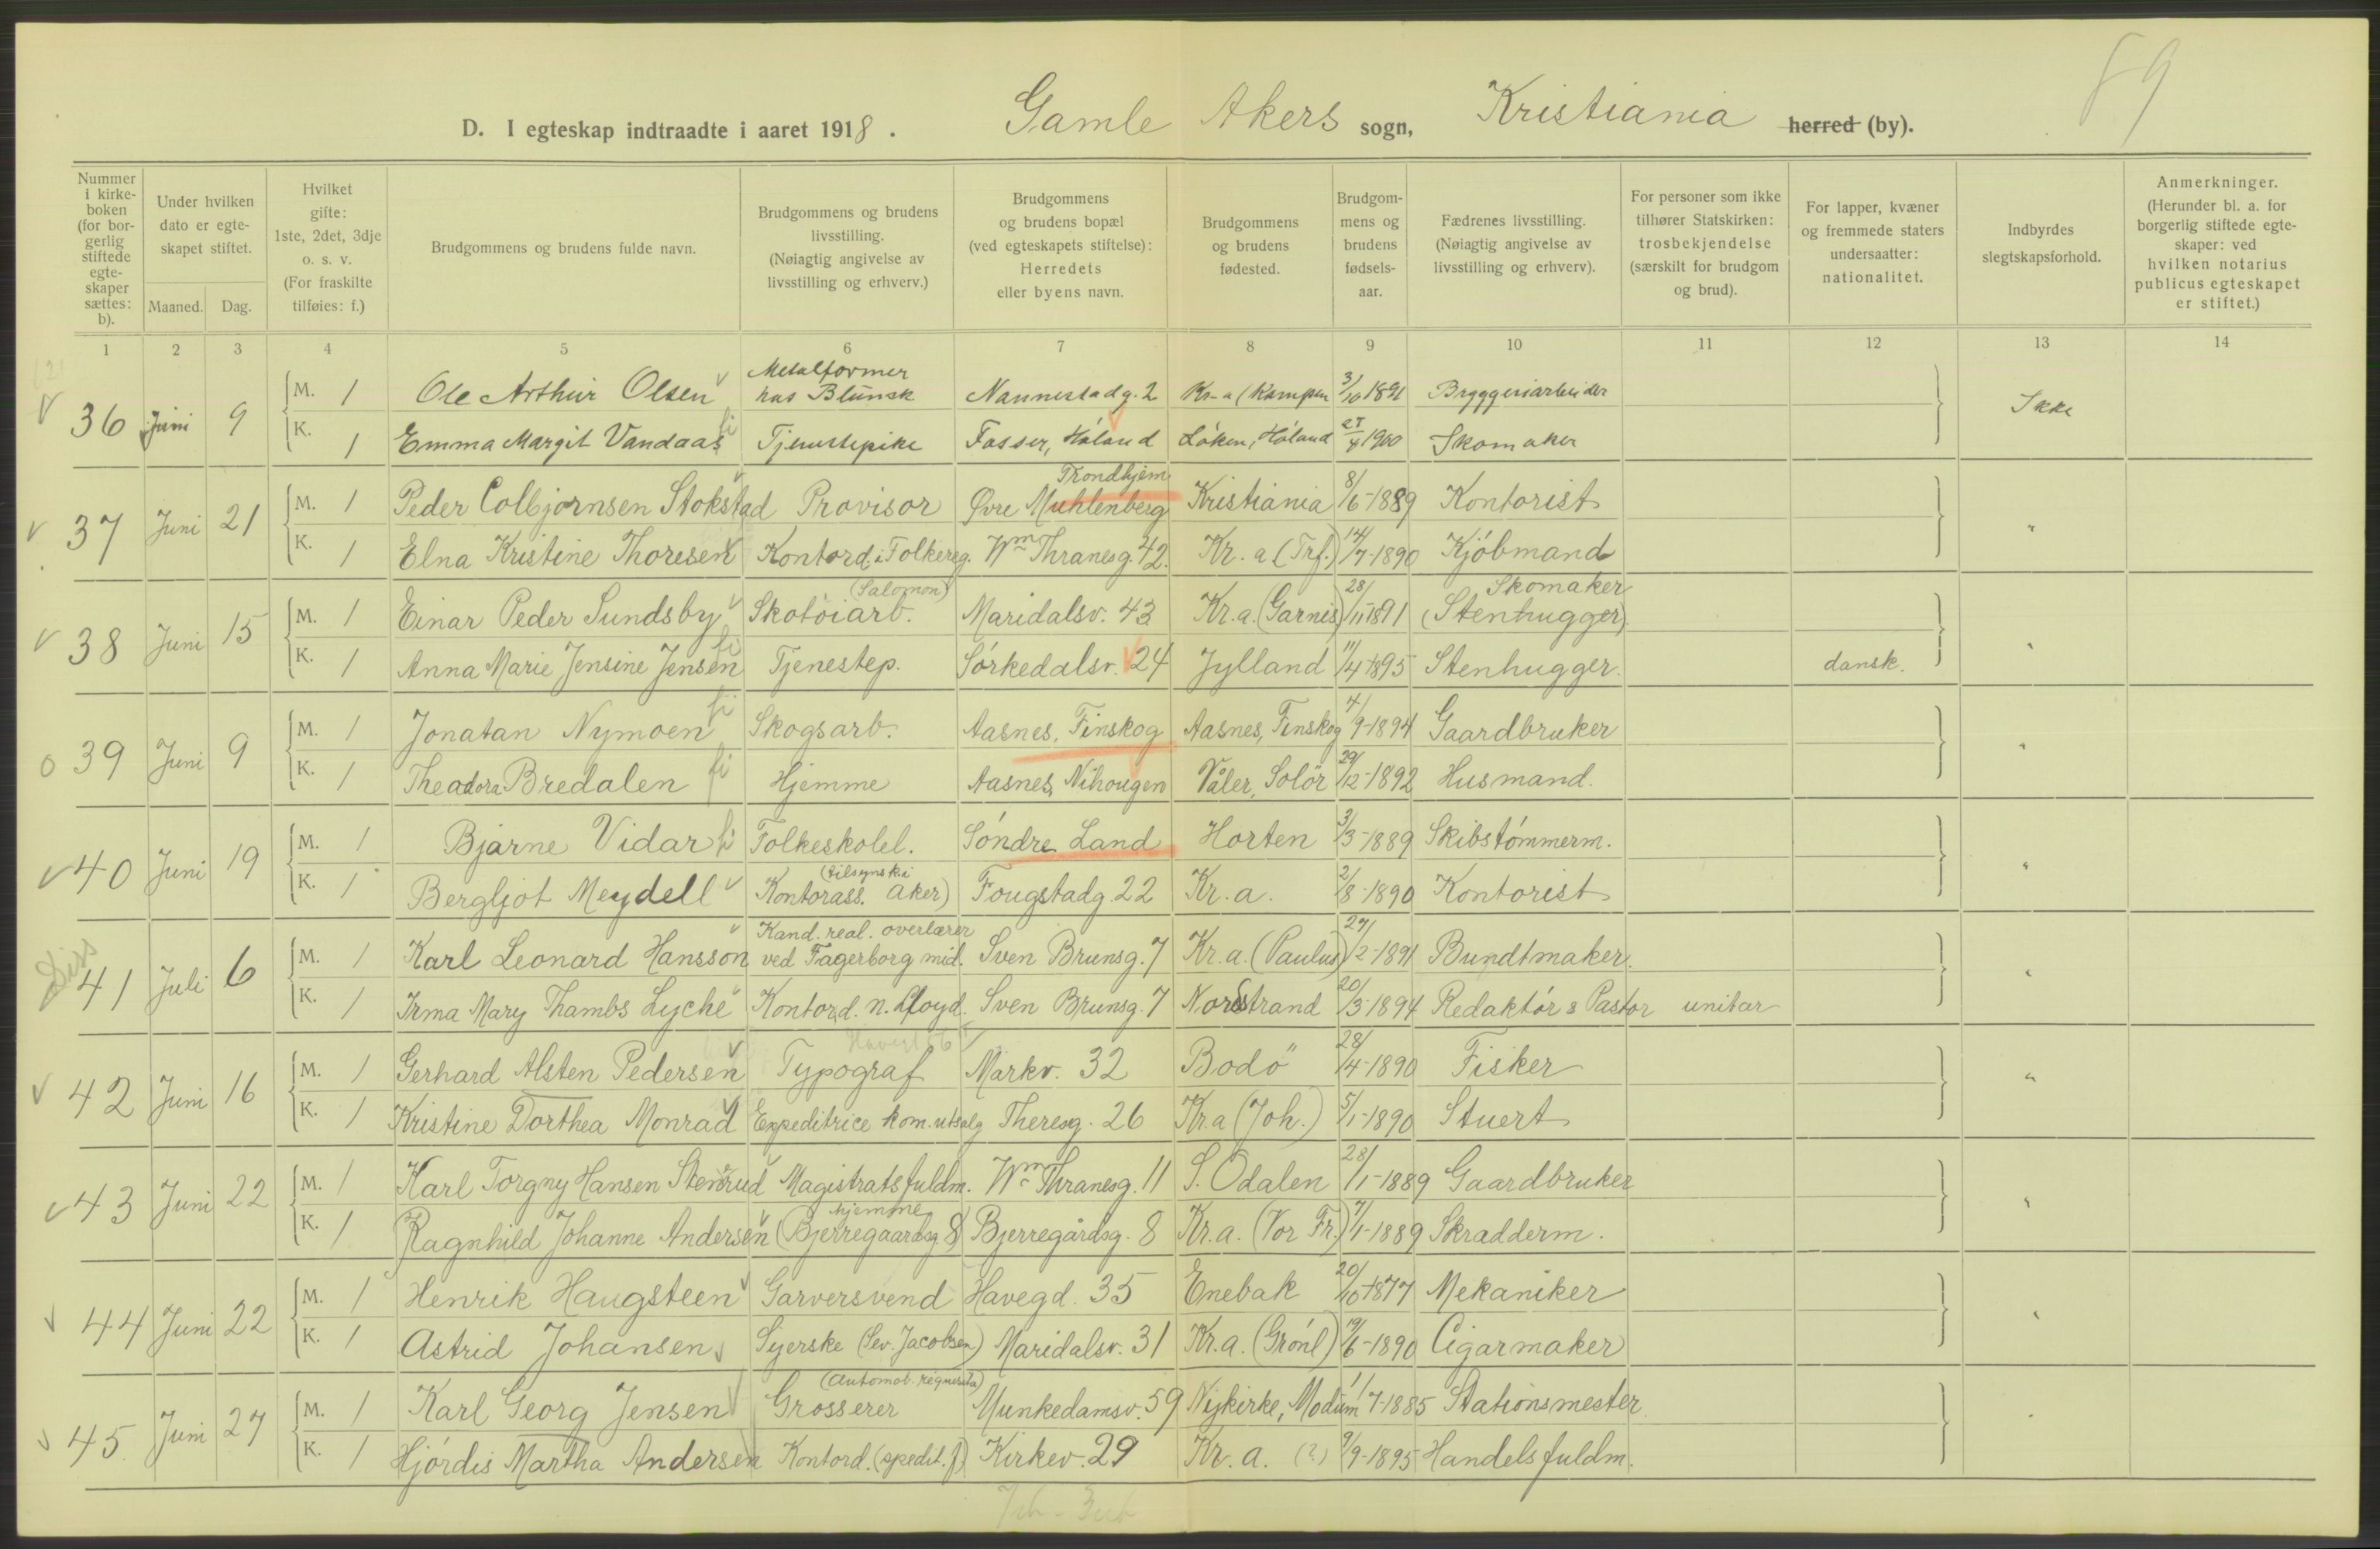 89
D. I egteskap indtraadte i aaret 1918. Gamle Akers sogn, Kristiania herred (by).
Nummer i kirke- boken (for bor- gerlig stiftede egte- skaper sættes: b).
Under hvilken dato er egte- skapet stiftet.
Maaned. Dag.
Hvilket gifte: 1ste, 2det, 3dje o. s. v. (For fraskilte tilføies: f.)
Brudgommens og brudens fulde navn.
Brudgommens og brudens livsstilling. (Nøiagtig angivelse av livsstilling og erhverv.)
Brudgommens og brudens bopæl (ved egteskapets stiftelse): Herredets eller byens navn.
Brudgommens og brudens fødested.
Brudgom- mens og brudens fødsels- aar.
Fædrenes livsstilling. (Nøiagtig angivelse av livsstilling og erhverv).
For personer som ikke tilhører Statskirken: trosbekjendelse (særskilt for brudgom og brud).
For lapper, kvæner og fremmede staters undersaatter: nationalitet.
Indbyrdes slegtskapsforhold.
Anmerkninger. (Herunder bl. a. for borgerlig stiftede egte- skaper: ved hvilken notarius publicus egteskapet er stiftet.)
1 2 3 4 5 6 7 8 9 10 11 12 13 14
36 Juni 9 M. 1 Ole Arthur Olsen Metalformer hos Blunck Nannestadg. 2 Kr-a (Kampen 3/10 1891 Bryggeriarbeider Ikke
K. 1 Emma Margit Vandaas Tjenestepike Fosser, Høland Løken, Høland 25/4 1900 Skomaker
37 Juni 21 M. 1 Peder Colbjørnsen Stokstad Provisor Øvre Muhlenberg Trondhjem Kristiania 8/6-1889 Kontorist "
K. 1 Elna Kristine Thoresen Kontord. i Folkereg. Wm Thranesg. 42. Kr.a (Trf.) 14/7-1890 Kjøbmand
38 Juni 15 M. 1 Einar Peder Sundsby Skotøiarb. (Salomon) Maridalsv. 43 Kr.a. (Garnis) 28/11-1891 Skomaker (Stenhugger) "
K. 1 Anna Marie Jensine Jensen Tjenestep. Sørkedalsv. 24 Jylland 11/4-1895 Stenhugger. dansk.
39 Juni 9 M. 1 Jonatan Nymoen Skogsarb. Aasnes, Finskog Aasnes, Finskog 4/9-1894 Gaardbruker "
K. 1 Theadora Bredalen Hjemme Aasnes, Nihougen Våler, Solør 29/12-1892 Husmand.
40 Juni 19 M. 1 Bjarne Vidar Folkeskolel. Søndre Land Horten 3/3-1889 Skibstømmerm. "
K. 1 Bergljot Meydell Kontorass. (tilsynski Aker) Fougstadg. 22 Kr.a. 2/8-1890 Kontorist
41 Juli 6 M. 1 Karl Leonard Hansson Kand. real. overlærer ved Fagerborg mid. Sven Brunsg. 7 Kr.a. (Paulus) 27/2-1891 Bundtmaker. "
K. 1 Irma Mary Thambs Lyche Kontord. n. Lloyd. Sven Brunsg. 7 Nordstrand 20/3-1894 Redaktør & Pastor unitar
42 Juni 16 M. 1 Gerhard Alsten Pedersen Typograf Markv. 32 Bodö 28/4-1890 Fisker "
K. 1 Kristine Dorthea Monrad Expeditrice kom. utsalg Theresg. 26 Kr.a (Joh.) 5/1-1890 Stuert
43 Juni 22 M. 1 Karl Torgny Hansen Stenrud Magistratsfuldm. Wm Thranesg. 11 S. Odalen 28/1-1889 Gaardbruker "
K. 1 Ragnhild Johanne Andersen hjemme (Bjerregaardsg 8) Bjerregårdsg. 8 Kr.a. (Vor Fr.) 7/1-1889 Skradderm.
44 Juni 22 M. 1 Henrik Haugsteen Garversvend Havegd. 35 Enebak 20/10-1877 Mekaniker "
K. 1 Astrid Johansen Syerske (Sev. Jacobsen) Maridalsv. 31 Kr.a. (Grønl) 19/6-1890 Cigarmaker
45 Juni 27 M. 1 Karl Georg Jensen Grosserer Munkedamsv. 59 Nykirke, Modum 1/7-1885 Stationsmester "
K. 1 Hjørdis Martha Andersen Kontord. (spedit. f.) Kirkev. 29 Kr.a. (?) 9/9-1895 Handelsfuldm.